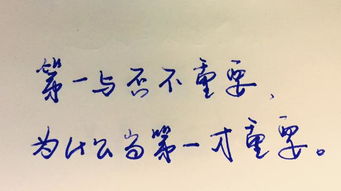 第一与否不重要，
为什么当第一才重要。